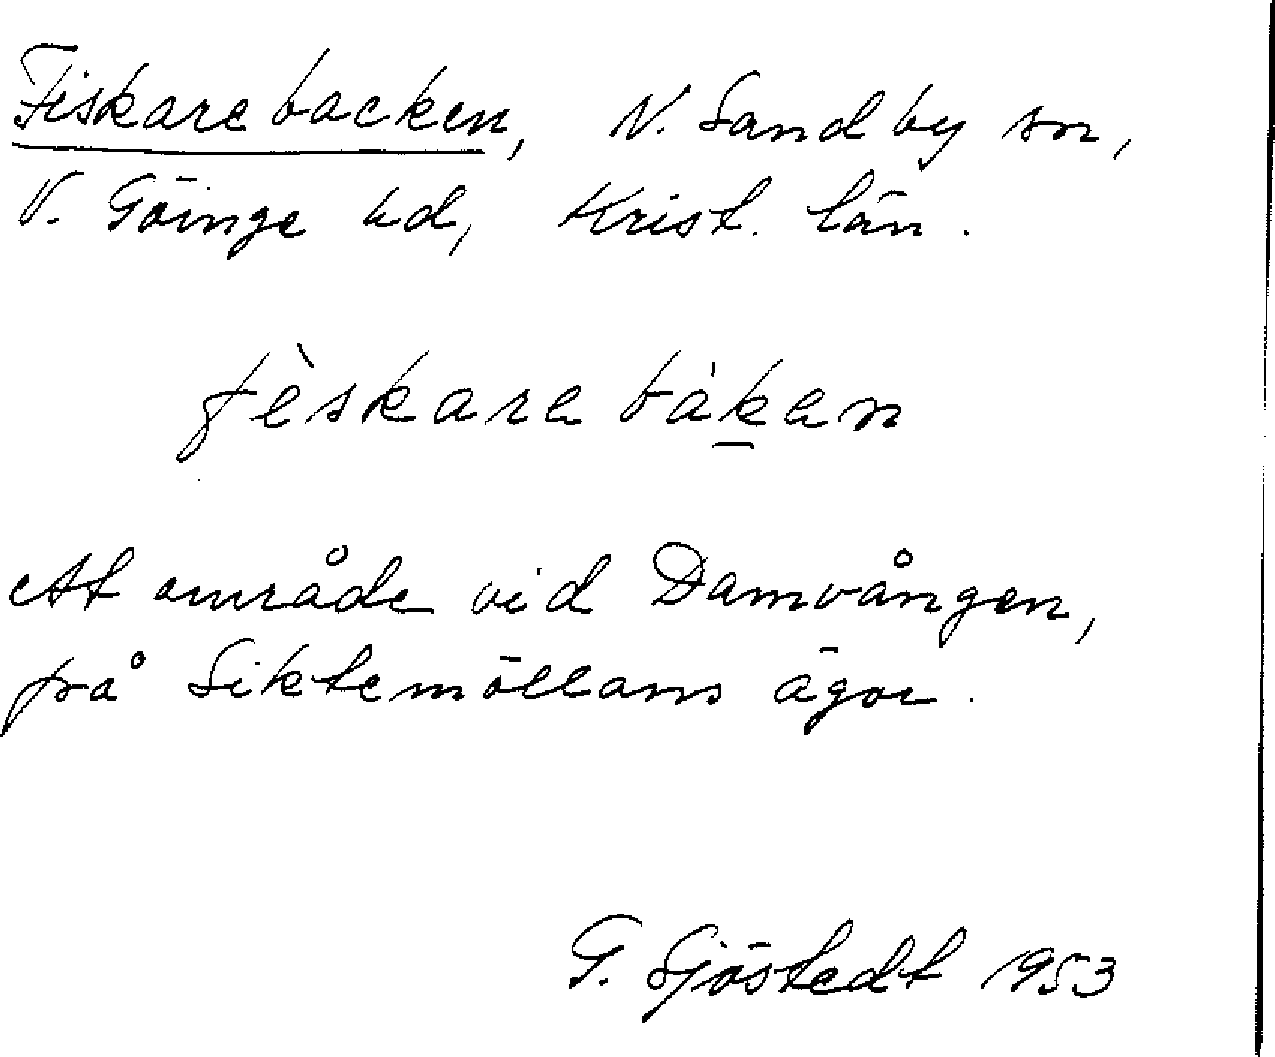 Fiskarebacken, N. Sandby sn,
V. Göinge hd, Krist. län.
fèskarabákan
ett område vid Damvången,
på Siktemöllans ägor.
G. Sjöstedt 1953